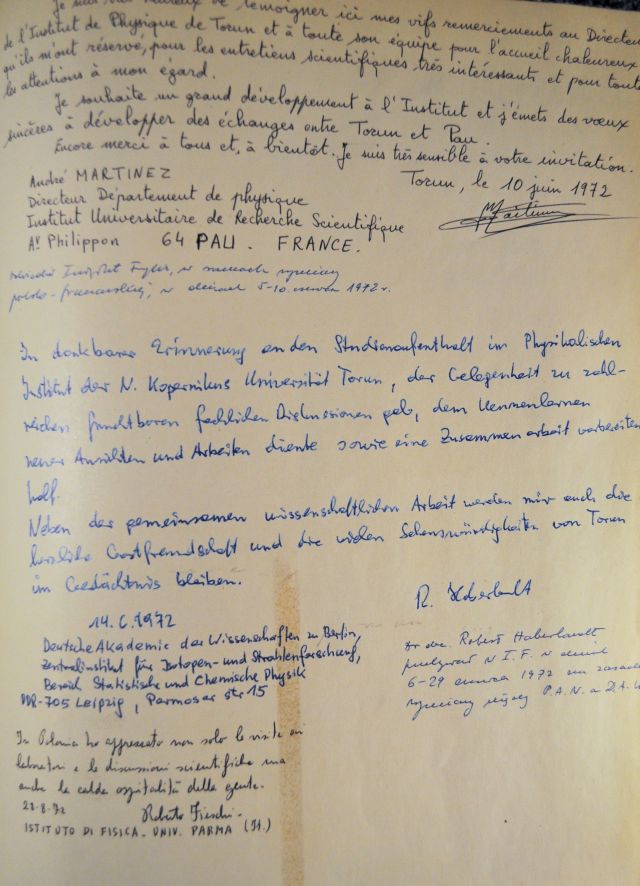 Je suis très heureux de témoigner ici mes vifs remerciements au Directeur
de l'Institut de Physique de Torun et à toute son équipe pour l'accueil chaleureux
qu'ils m'ont réservé, pour les entretiens scientifiques très intéressants et pour toutes
les attentions à mon égard.
Je souhaite un grand développement à l'Institut et j'émets des vœux
sincères à développer des échanges entre Torun et Pau.
Encore merci à tous et, à bientôt. Je suis très sensible à votre invitation.
Torun, le 10 juin 1972
André MARTINEZ
Directeur Département de physique
Institut Universitaire de Recherche Scientifique
Av Philippon 64 PAU. FRANCE.
Instytut Fizyki, w ramach wymiany
polsko-francuskiej, w dniach 5-10 czerwca 1972 r.
In dankbarer Erinnerung an den Studienaufenthalt im Physikalischen
Institut der N. Kopernikus Universität Torun, der Gelegenheit zu zahl-
reichen fruchtbaren fachlichen Diskussionen gab, dem Kennenlernen
neuer Ansichten und Arbeiten diente sowie eine Zusammenarbeit vorbereiten
half.
Neben der gemeinsamen wissenschaftlichen Arbeit werden mir auch die
herzliche Gastfreundschaft und die vielen Sehenswürdigkeiten von Torun
im Gedächtnis bleiben.
R. Haberlandt
14.6.1972
Deutsche Akademie der Wissenschaften zu Berlin,
Zentralinstitut für Isotopen- und Strahlenforschung,
Bereich Statistische und Chemische Physik
DDR-705 Leipzig, Permoser str 15
Dr doc. Robert Haberlandt
przebywał w I.F. w dniach
6-29 czerwca 1972 na zasadzie
wymiany między P.A.N. a D.A.W.
In Polonia ho apprezzato non solo le visite ai
laboratori e le discussioni scientifiche ma
anche la calda ospitalità della gente.
23-8-72 Roberto Fieschi
ISTITUTO DI FISICA - UNIV. PARMA (It.)